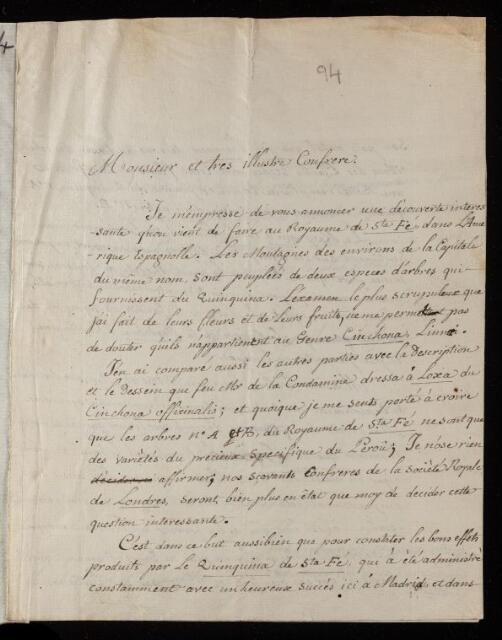 94
Monsieur et tres illustre Confrere.
Je m'empresse de vous annoncer une decouverte interes
sante qu'on vient de faire au Royaume de Sta Fé, dans l'Ame
rique Espagnolle. Les Montagnes des environs de la Capitale
du même nom, sont peuplées de deux especes d'arbres qui
fournissent du Quinquina. L'examen le plus scrupuleux que
j'ai fait de leurs fleurs et de leurs fruits, ne me permet pas
de douter qu'ils n'appartienent au Genre Cinchona, Linnæi.
J'en ai comparé aussi les autres parties avec la description
et le dessein que feu Mr de la Condamine dressa à Loxa du
Cinchona officinalis; et quoique je me sents porté à croire
que les arbres no A et B, du Royaume de Sta Fé ne sont que
des varietés du précieux Specifique du Perou; Je n'ose rien
affirmer; nos sçavants Confreres de la Société Royale
de Londres, seront bien plus en état que moy de decider cette
question interessante.
C'est dans ce but aussi bien que pour constater les bons effets
produits par le Quinquina de Sta Fé, qui à été administré
constamment avec un heureux succés ici à Madrid, et dans